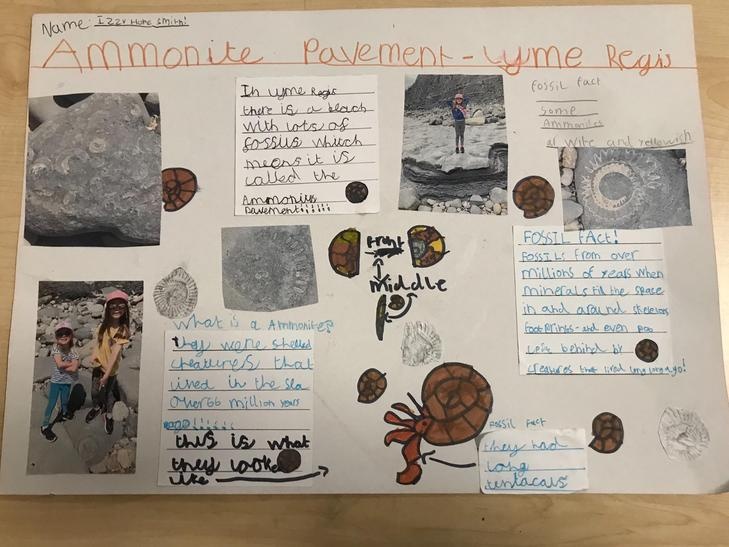 Name: Izzy Hope Smith!
Ammonite Pavement - Lyme Regis
In Lyme Regis
there is a beach
with lots of
fossils which
means it is
called the
Ammonius
Pavement!!!!!
FOSSIL Fact
Some
Ammonites
al wite and yellowich
FOSSIL FAct!
FOSSILs From over
millions of years when
minerals fill the space
in and around skeletons
footprints and even poo
left behind by
creatures that lived long long ago!
Front
Middle
What is a Ammonite?
they were shelled
creatures that
lived in the sea
Over 66 million years
ago!!!!!!
this is what
they looke
like
Fossil Fact
they had
long
tentacals